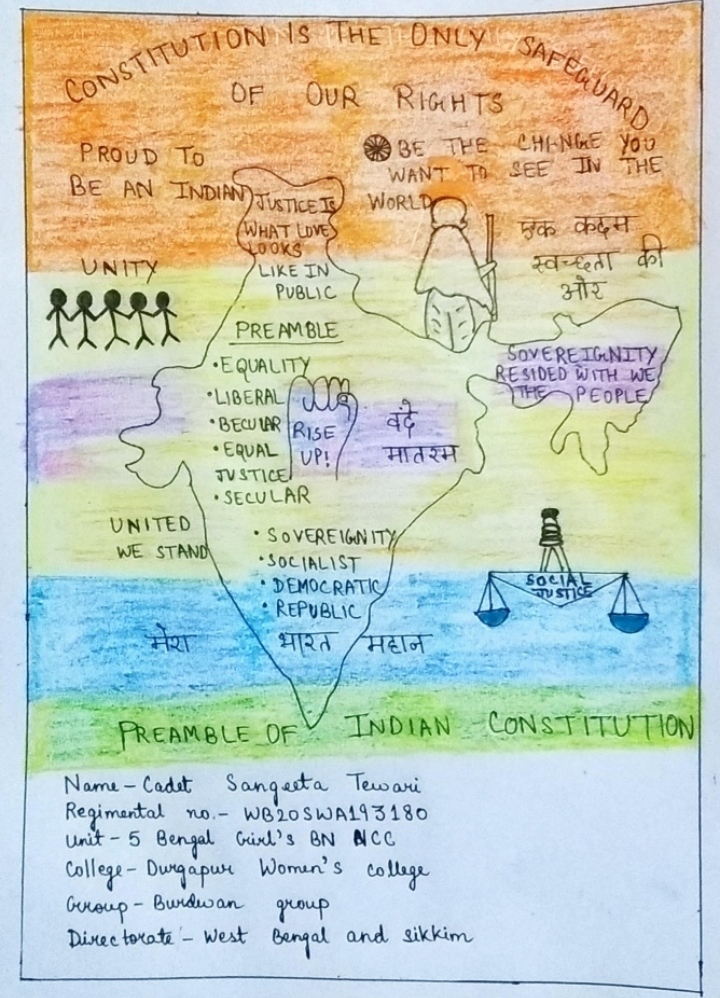 CONSTITUTION IS THE ONLY SAFEGUARD
OF OUR RIGHTS
PROUD TO
BE AN INDIAN
BE THE CHANGE YOU
WANT TO SEE IN THE
WORLD
JUSTICE IS
WHAT LOVE
LOOKS
LIKE IN
PUBLIC
एक कदम
स्वच्छता की
ओर
UNITY
PREAMBLE
•EQUALITY
•LIBERAL
•BECULAR
•EQUAL
JUSTICE
•SECULAR
RISE
UP!
वंदे
मातरम
SOVEREIGNITY
RESIDED WITH WE
THE PEOPLE
UNITED
WE STAND
•SOVEREIGNITY
•SOCIALIST
•DEMOCRATIC
•REPUBLIC
SOCIAL
JUSTICE
मेरा भारत महान
PREAMBLE OF INDIAN CONSTITUTION
Name - Cadet Sangeeta Tewari
Regimental no. - WB20SWA193180
Unit - 5 Bengal Girl's BN NCC
College - Durgapur Women's college
Group - Burdwan group
Directorate - West Bengal and sikkim